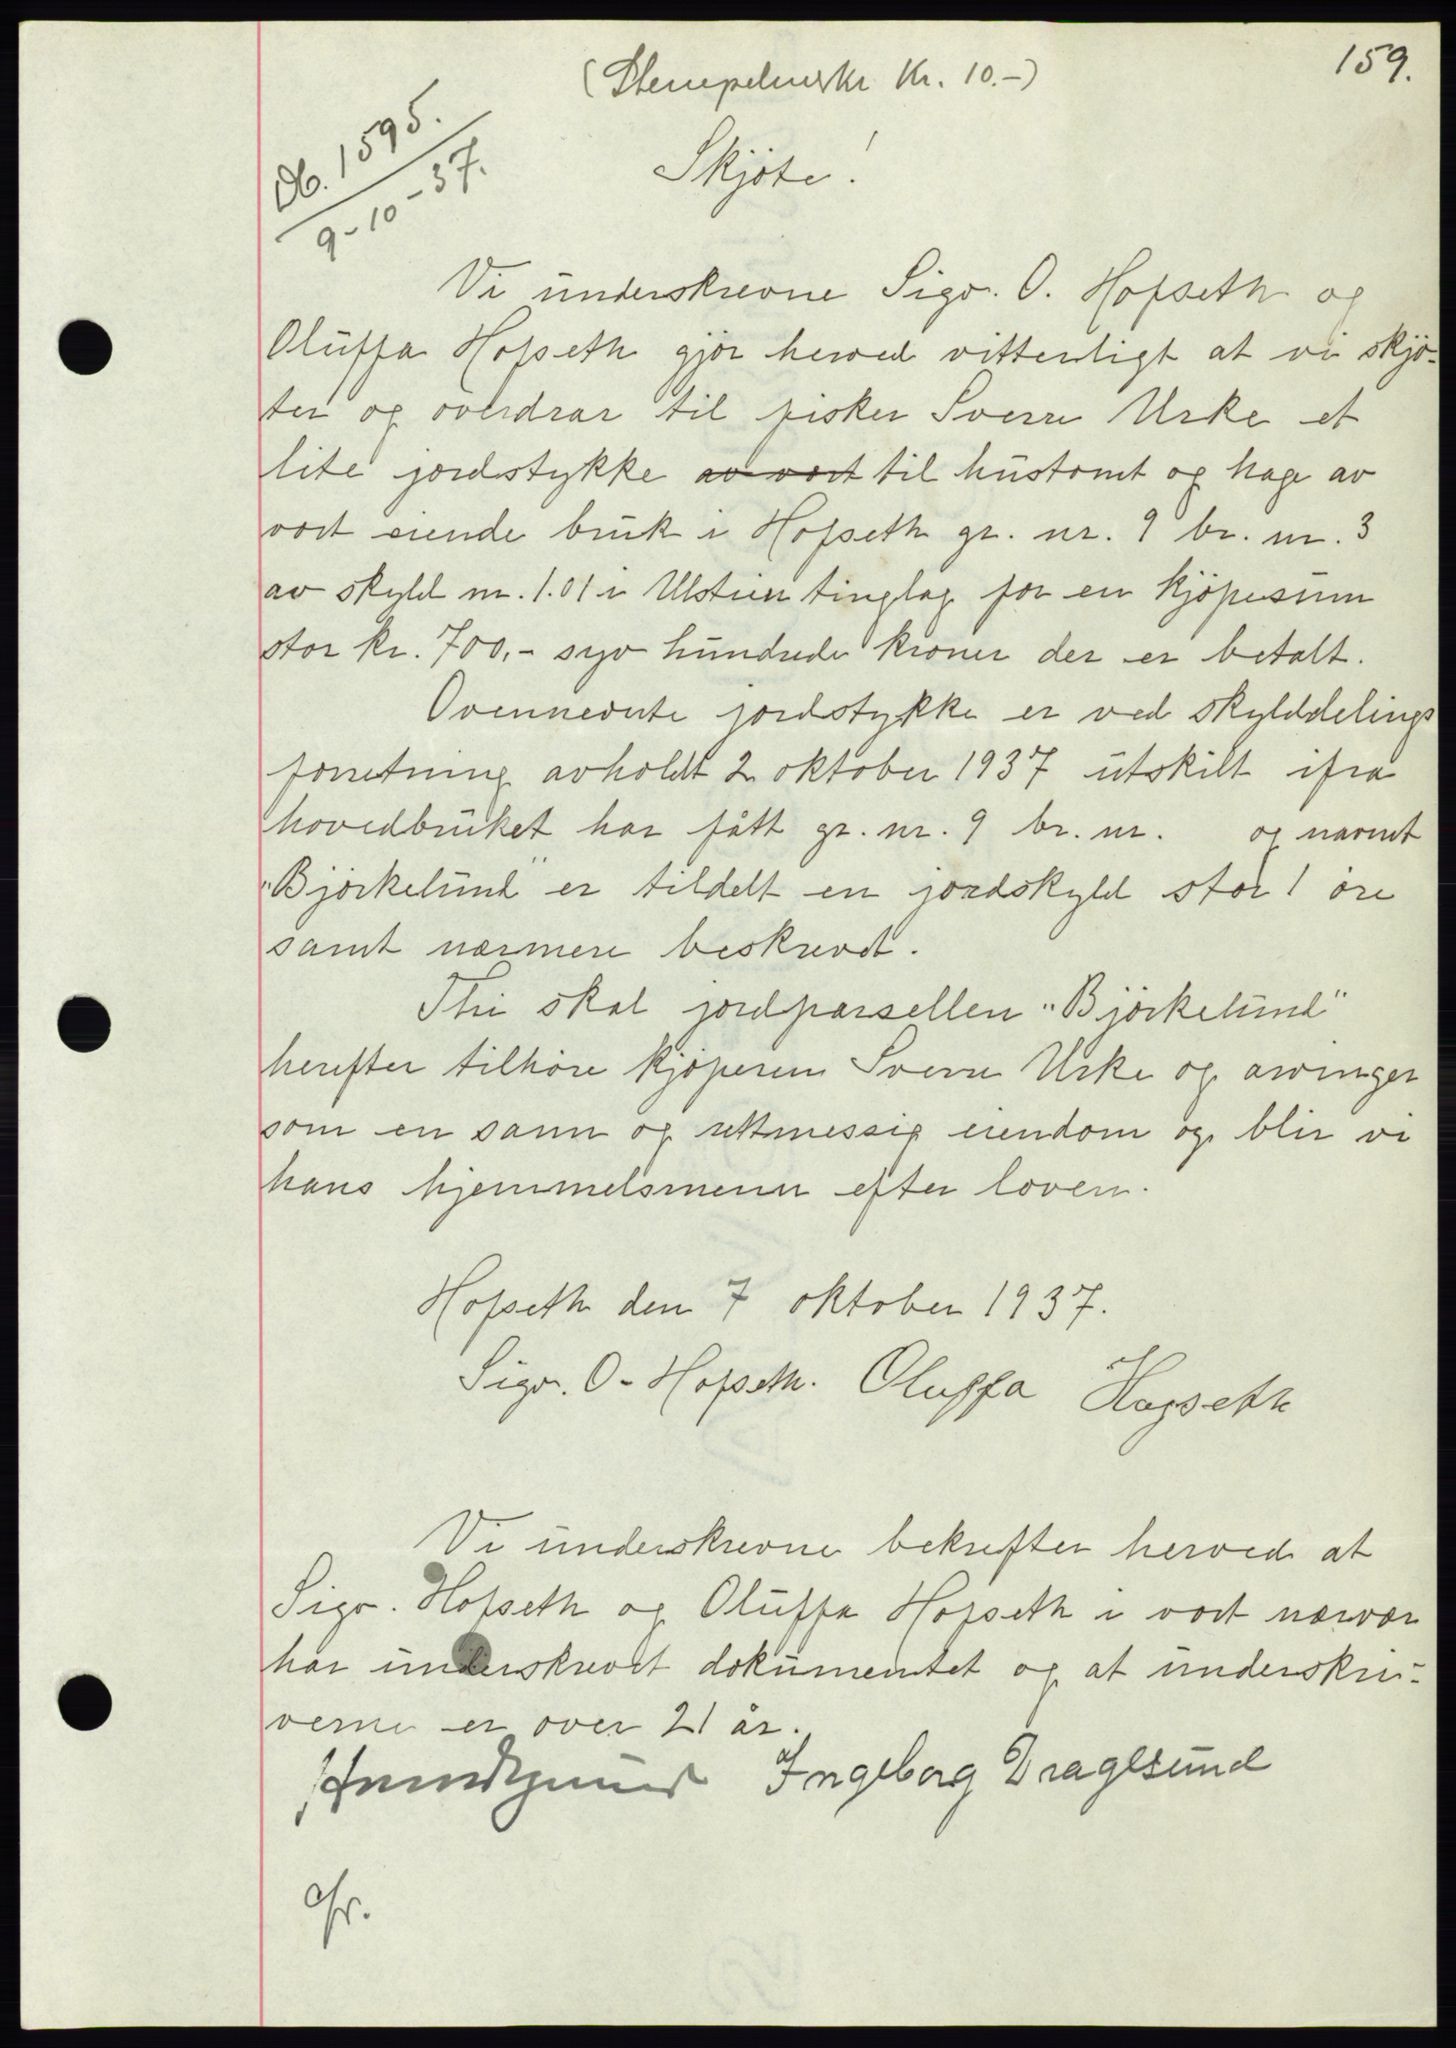 159.
(Stempelmerke kr. 10.-)
Db. 1595.
9-10-37.
Skjöte!
Vi underskrevne Sigv. O. Hofseth og
Oluffa Hofseth gjör herved vitterligt at vi skjö-
ter og overdrar til fisker Sverre Urke et
lite jordstykke av vort til hustomt og hage av
vort eiende bruk i Hofseth gr. nr. 9 br. nr. 3
av skyld m. 1.01 i Ulstein tinglag for en kjöpesum
stor kr. 700,- syv hundrede kroner der er betalt.
Ovennevnte jordstykke er ved skylddelings
forretning avholdt 2 oktober 1937 utskilt ifra
hovedbruket har fått gr. nr. 9 br. nr. og navnet
"Björkelund" er tildelt en jordskyld stor 1 öre
samt nærmere beskrevet.
Thi skal jordparsellen "Björkelund"
herefter tilhöre kjöperen Sverre Urke og arvinger
som en sann og rettmessig eiendom og blir vi
hans hjemmelsmenn efter loven.
Hofseth den 7 oktober 1937.
Sigv. O. Hofseth. Oluffa Hofseth
Vi underskrevne bekrefter herved at
Sigv. Hofseth og Oluffa Hofseth i vort nærvær
har underskrevet dokumentet og at underskri-
verne er over 21 år.
Ingeborg Draglsund